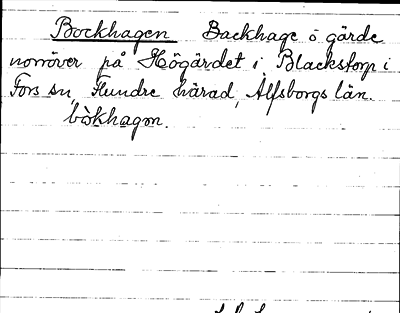 Bockhagen Backhage o gärde
norröver på Högärdet i Blackstorp i
Fors sn, Flundre härad, Älfsborgs län.
bòkhagən.